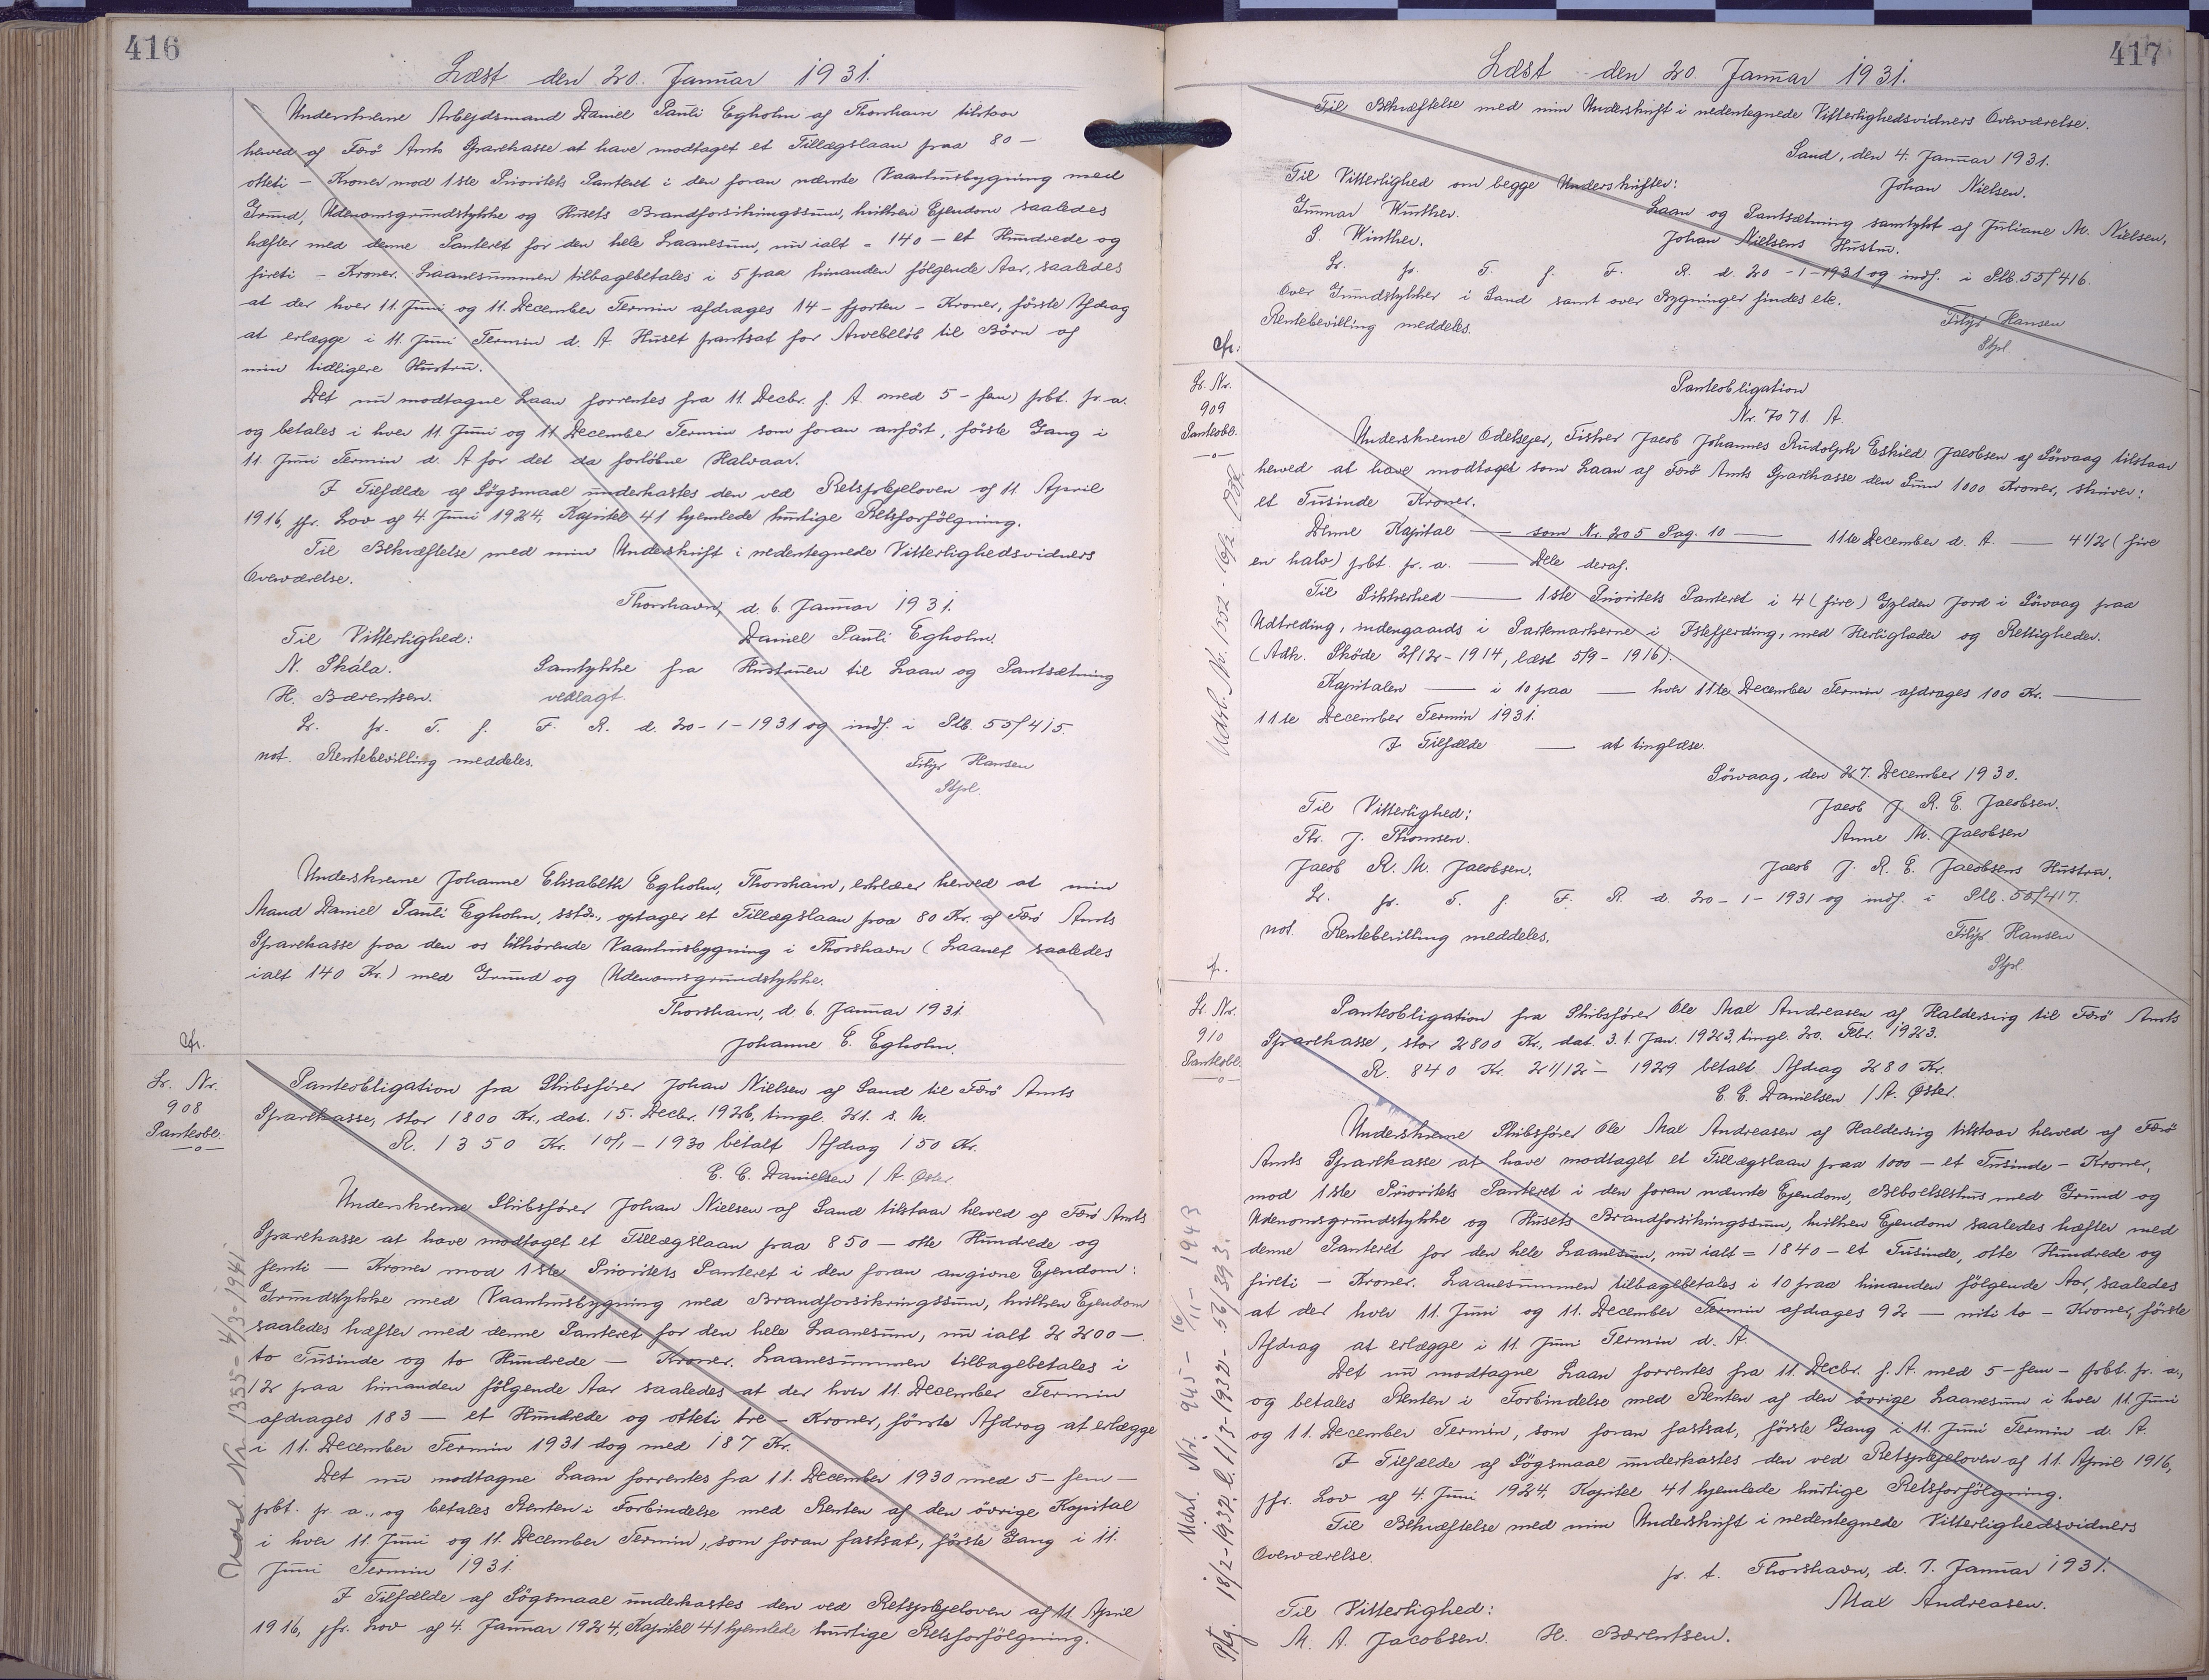 416
Læst den 20. Januar 1931.
Underskrevne Arbejdsmand Daniel Pauli Egholm af Thorshavn tilstaar
herved af Færö Amts Sparekasse at have modtaget et Tillægslaan paa 80 —
otteti — Kroner mod 1ste Prioritets Panteret i den foran nævnte Vaanhusbygning med
Grund, Udenomsgrundstykke og Husets Brandforsikringssum, hvilken Ejendom saaledes
hæfter med denne Panteret for den hele Laanesum, nu ialt = 140 — et Hundrede og
fireti — Kroner. Laanesummen tilbagebetales i 5 paa hinanden følgende Aar, saaledes
at der hver 11. Juni og 11. December Termin afdrages 14 — fjorten — Kroner, første Afdrag
at erlægge i 11. Juni Termin d. A. Huset pantsat for Arvebeløb til Börn af
min tidligere Hustru.
Det nu modtagne Laan forrentes fra 11. Decbr. f. A. med 5 - fem) prbt. pr. a.
og betales i hver 11. Juni og 11. December Termin som foran anført, første Gang i
11. Juni Termin d. A for det da forløbne Halvaar.
I Tilfælde af Søgsmaal underkastes den ved Retsplejeloven af 11. April
1916, jfr. Lov af 4. Juni 1924, Kapitel 41 hjemlede hurtige Retsforfølgning.
Til Bekræftelse med min Underskrift i nedentegnede Vitterlighedsvidners
Overværelse.
Thorshavn, d. 6. Januar 1931.
Til Vitterlighed: Daniel Pauli Egholm.
N. Skála. Samtykke fra Hustruen til Laan og Pantsætning
H. Bærentsen. vedlagt.
Lr. pr. T. f. F. R. d. 20-1-1931 og indf. i Plb. 55/415.
not. Rentebevilling meddeles. Filip Hansen
Stpl.
Underskrevne Johanne Elisabeth Egholm, Thorshavn, erklærer herved at min
Mand Daniel Pauli Egholm, sstds., optager et Tillægslaan paa 80 Kr. af Færö Amts
Sparekasse paa den os tilhørende Vaanhusbygning i Thorshavn (Laanet saaledes
ialt 140 Kr.) med Grund og Udenomsgrundstykke.
Thorshavn, d. 6. Januar 1931.
Johanne E. Egholm.
Lr. Nr.
908
Panteobl.
Panteobligation fra Skibsfører Johan Nielsen af Sand til Færö Amts
Sparekasse, stor 1800 Kr., dat. 15. Decbr. 1926, tingl. 21. s. M.
R. 1350 Kr. 10/1 - 1930 betalt Afdrag 150 Kr.
E. E. Danielsen / A. Øster.
Underskrevne Skibsfører Johan Nielsen af Sand tilstaar herved af Færö Amts
Sparekasse at have modtaget et Tillægslaan paa 850 — otte Hundrede og
femti — Kroner mod 1ste Prioritets Panteret i den foran angivne Ejendom:
Grundstykke med Vaanhusbygning med Brandforsikringssum, hvilken Ejendom
saaledes hæfter med denne Panteret for den hele Laanesum, nu ialt 2200 —
to Tusinde og to Hundrede — Kroner. Laanesummen tilbagebetales i
12 paa hinanden følgende Aar saaledes at der hver 11. December Termin
afdrages 183 — et Hundrede og otteti tre — Kroner, første Afdrag at erlægge
i 11. December Termin 1931 dog med 187 Kr.
Det nu modtagne Laan forrentes fra 11. December 1930 med 5 — fem —
prbt. pr. a., og betales Renten i Forbindelse med Renten af den övrige Kapital
i hver 11. Juni og 11. December Termin, som foran fastsat, første Gang i 11.
Juni Termin 1931.
I Tilfælde af Søgsmaal underkastes den ved Retsplejeloven af 11. April
1916, jfr. Lov af 4. Januar 1924, Kapitel 41 hjemlede hurtige Retsforfølgning.
Udsl. Nr. 1335 - 4/3 - 1941
417
Læst den 20. Januar 1931.
Til Bekræftelse med min Underskrift i nedentegnede Vitterlighedsvidners Overværelse.
Sand, den 4. Januar 1931.
Til Vitterlighed om begge Underskrifter: Johan Nielsen.
Gunnar Winther. Laan og Pantsætning samtykt af Juliane M. Nielsen,
S. Winther. Johan Nielsens Hustru.
Lr. pr. T. f. F. R. d. 20-1-1931 og indf. i Plb. 55/416.
Over Grundstykker i Sand samt over Bygninger findes etc.
Rentebevilling meddeles. Filip Hansen
Stpl.
Lr. Nr.
909
Panteobl.
Panteobligation
Nr. 7071. A.
Underskrevne Odelsejer, Fisker Jacob Johannes Rudolph Eskild Jacobsen af Sörvaag tilstaar
herved at have modtaget som Laan af Færö Amts Sparekasse den Sum 1000 Kroner, skriver:
et Tusinde Kroner.
Denne Kapital — som Nr. 205 Pag. 10 — 11te December d. A. — 4 1/2 (fire
en halv) prbt. pr. a. — Dele deraf.
Til Sikkerhed — 1ste Prioritets Panteret i 4 (fire) Gylden Jord i Sörvaag paa
Udtreding, indengaards i Partemarkerne i Istefjerding, med Herligheder og Rettigheder.
(Adk. Sköde 2/12 - 1914, læst 5/9 - 1916).
Kapitalen — i 10 paa — hver 11te December Termin afdrages 100 Kr. —
11te December Termin 1931.
I Tilfælde — at tinglæse.
Sörvaag, den 27. December 1930.
Til Vitterlighed: Jacob J. R. E. Jacobsen.
Thr. J. Thomsen. Anne M. Jacobsen
Jacob R. M. Jacobsen. Jacob J. R. E. Jacobsens Hustru.
Lr. pr. T. f. F. R. d. 20-1-1931 og indf. i Plb. 55/417.
not. Rentebevilling meddeles. Filip Hansen
Stpl.
Lr. Nr.
910
Panteobl.
Panteobligation fra Skibsfører Ole Max Andreasen af Haldersvig til Færö Amts
Sparekasse, stor 2800 Kr., dat. 3. 1. Jan. 1923, tingl. 20. Febr. 1923.
R. 840 Kr. 21/12 - 1929 betalt Afdrag 280 Kr.
E. E. Danielsen / A. Øster.
Underskrevne Skibsfører Ole Max Andreasen af Haldersvig tilstaar herved af Færö
Amts Sparekasse at have modtaget et Tillægslaan paa 1000 — et Tusinde — Kroner,
mod 1ste Prioritets Panteret i den foran nævnte Ejendom, Beboelseshus med Grund og
Udenomsgrundstykke og Husets Brandforsikringssum, hvilken Ejendom saaledes hæfter med
denne Panteret for den hele Laanesum, nu ialt = 1840 — et Tusinde, otte Hundrede og
fireti — Kroner. Laanesummen tilbagebetales i 10 paa hinanden følgende Aar, saaledes
at der hver 11. Juni og 11. December Termin afdrages 92 — niti to — Kroner, første
Afdrag at erlægge i 11. Juni Termin d. A.
Det nu modtagne Laan forrentes fra 11. Decbr. f. A. med 5 - fem - prbt. pr. a.,
og betales Renten i Forbindelse med Renten af den övrige Laanesum i hver 11. Juni
og 11. December Termin, som foran fastsat, første Gang i 11. Juni Termin d. A.
I Tilfælde af Søgsmaal underkastes den ved Retsplejeloven af 11. April 1916,
jfr. Lov af 4. Juni 1924, Kapitel 41 hjemlede hurtige Retsforfølgning.
Til Bekræftelse med min Underskrift i nedentegnede Vitterlighedsvidners
Overværelse.
pr. t. Thorshavn, d. 7. Januar 1931.
Til Vitterlighed: Max Andreasen.
M. A. Jacobsen. H. Bærentsen.
Udsl. Nr. 1552 - 16/2
Udsl. Nr. 945 - 16/11 - 1943